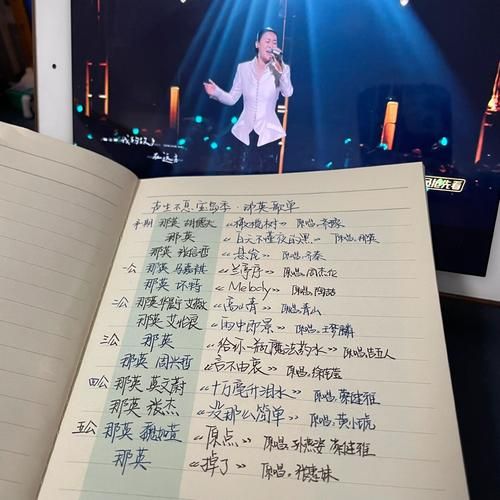 我的故乡
在远方
抢先看
声生不息宝岛季·那英歌单
半期 那英 胡德夫 《橄榄树》 原唱:齐豫
那英 《白天不懂夜的黑》 原唱:那英
那英 张信哲 《悬崖》 原唱:齐秦
一公 那英 马嘉祺 《兰亭序》 原唱:周杰伦
那英 坏特 《Melody》 原唱:陶喆
二公 那英 华晨宇 艾薇 《高山青》 原唱:青山
那英 艾怡良 《雨中即景》 原唱:王梦麟
三公 那英 《给你一瓶魔法药水》 原唱:告五人
那英 周兴哲 《言不由衷》 原唱:徐佳莹
四公 那英 莫文蔚 《十万毫升泪水》 原唱:蔡健雅
那英 张杰 《没那么简单》 原唱:黄小琥
五公 那英 魏如萱 《原点》 原唱:孙燕姿 蔡健雅
那英 《掉了》 原唱:张惠妹